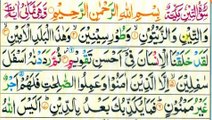 بِسْمِ اللّٰهِ الرَّحْمٰنِ الرَّحِيْمِ
وَالتِّيْنِ وَالزَّيْتُوْنِ وَطُوْرِ سِيْنِيْنَ وَهٰذَا الْبَلَدِ الْاَمِيْنِ
لَقَدْ خَلَقْنَا الْاِنْسَانَ فِيْ اَحْسَنِ تَقْوِيْمٍ ثُمَّ رَدَدْنٰهُ اَسْفَلَ
سٰفِلِيْنَ اِلَّا الَّذِيْنَ اٰمَنُوْا وَعَمِلُوا الصّٰلِحٰتِ فَلَهُمْ اَجْرٌ
غَيْرُ مَمْنُوْنٍ فَمَا يُكَذِّبُكَ بَعْدُ بِالدِّيْنِ اَلَيْسَ اللّٰهُ